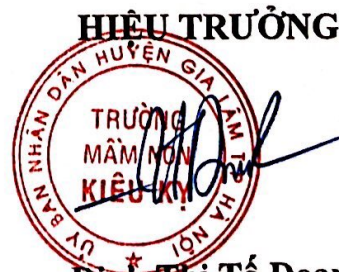 HIỆU TRƯỞNG
ỦY BAN NHÂN DÂN HUYỆN GIA LÂM TP HÀ NỘI
TRƯỜNG
MẦM NON
KIÊU KỴ
Thị Tố Đoan